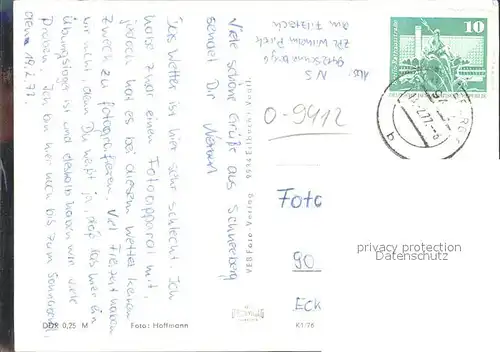 Viele schöne Grüße aus Schneeberg
sendet Dir
Das Wetter ist hier sehr schlecht. Ich
habe zwar einen Fotoapparat mit,
jedoch hat es bei diesem Wetter keinen
Zweck zu fotografieren. Viel Freizeit haben
wir nicht, denn Du weißt ja, daß das hier ein
Übungslager ist und deshalb haben wir viele
Proben. Ich bin hier noch bis zum Sonnabend,
dem 19.2.77.
Abs:
9412 Schneeberg 6
ZPL Wilhelm Pieck
am Filzteich
O-9412
Foto
90
Eck
10
VEB Foto-Verlag Erlbach
DDR 0,25 M
Foto: Hoffmann
K1/76
privacy protection
Datenschutz